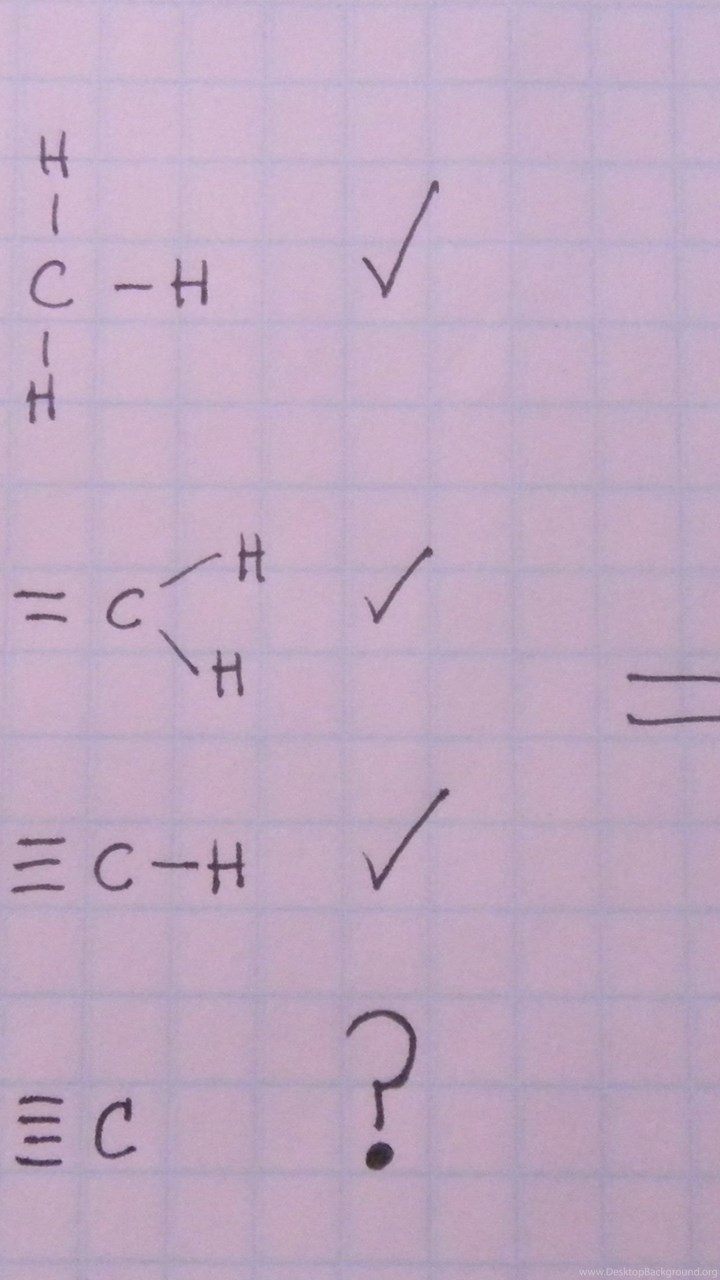 H
|
C – H ✓
|
H
H
= C ✓
H
=
≡ C – H ✓
≣ C ?
www.DesktopBackground.org